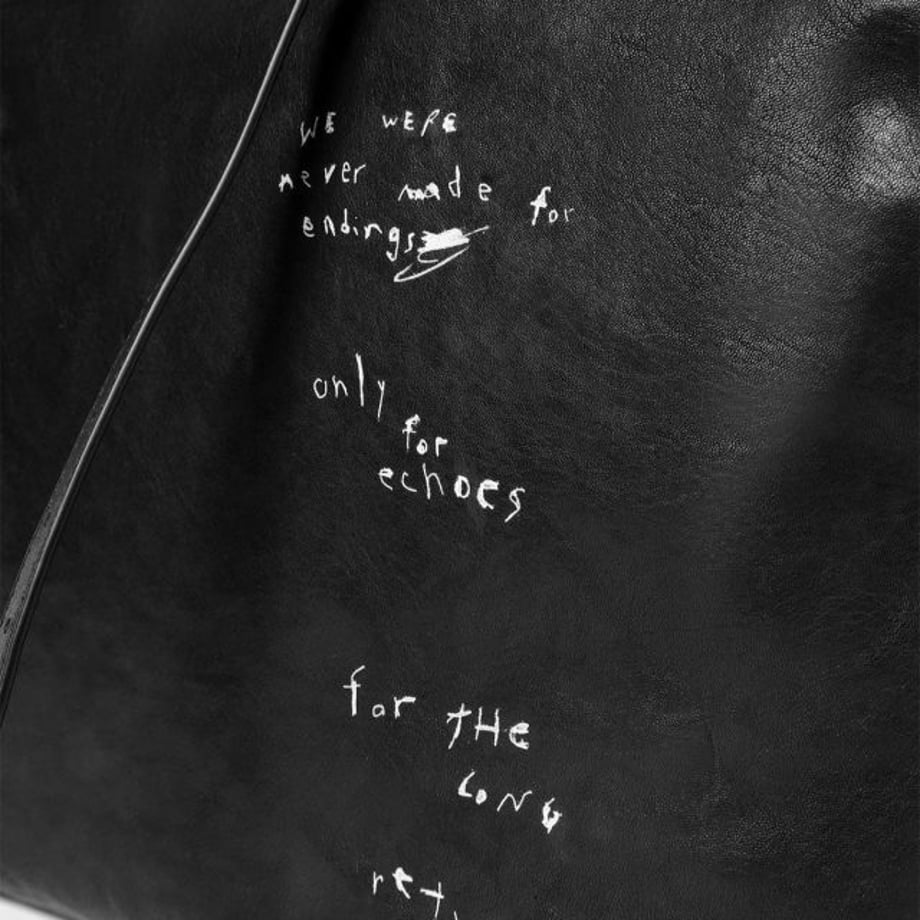 WE WERE
never made for
endings
only
for
echoes
for THE
LONG